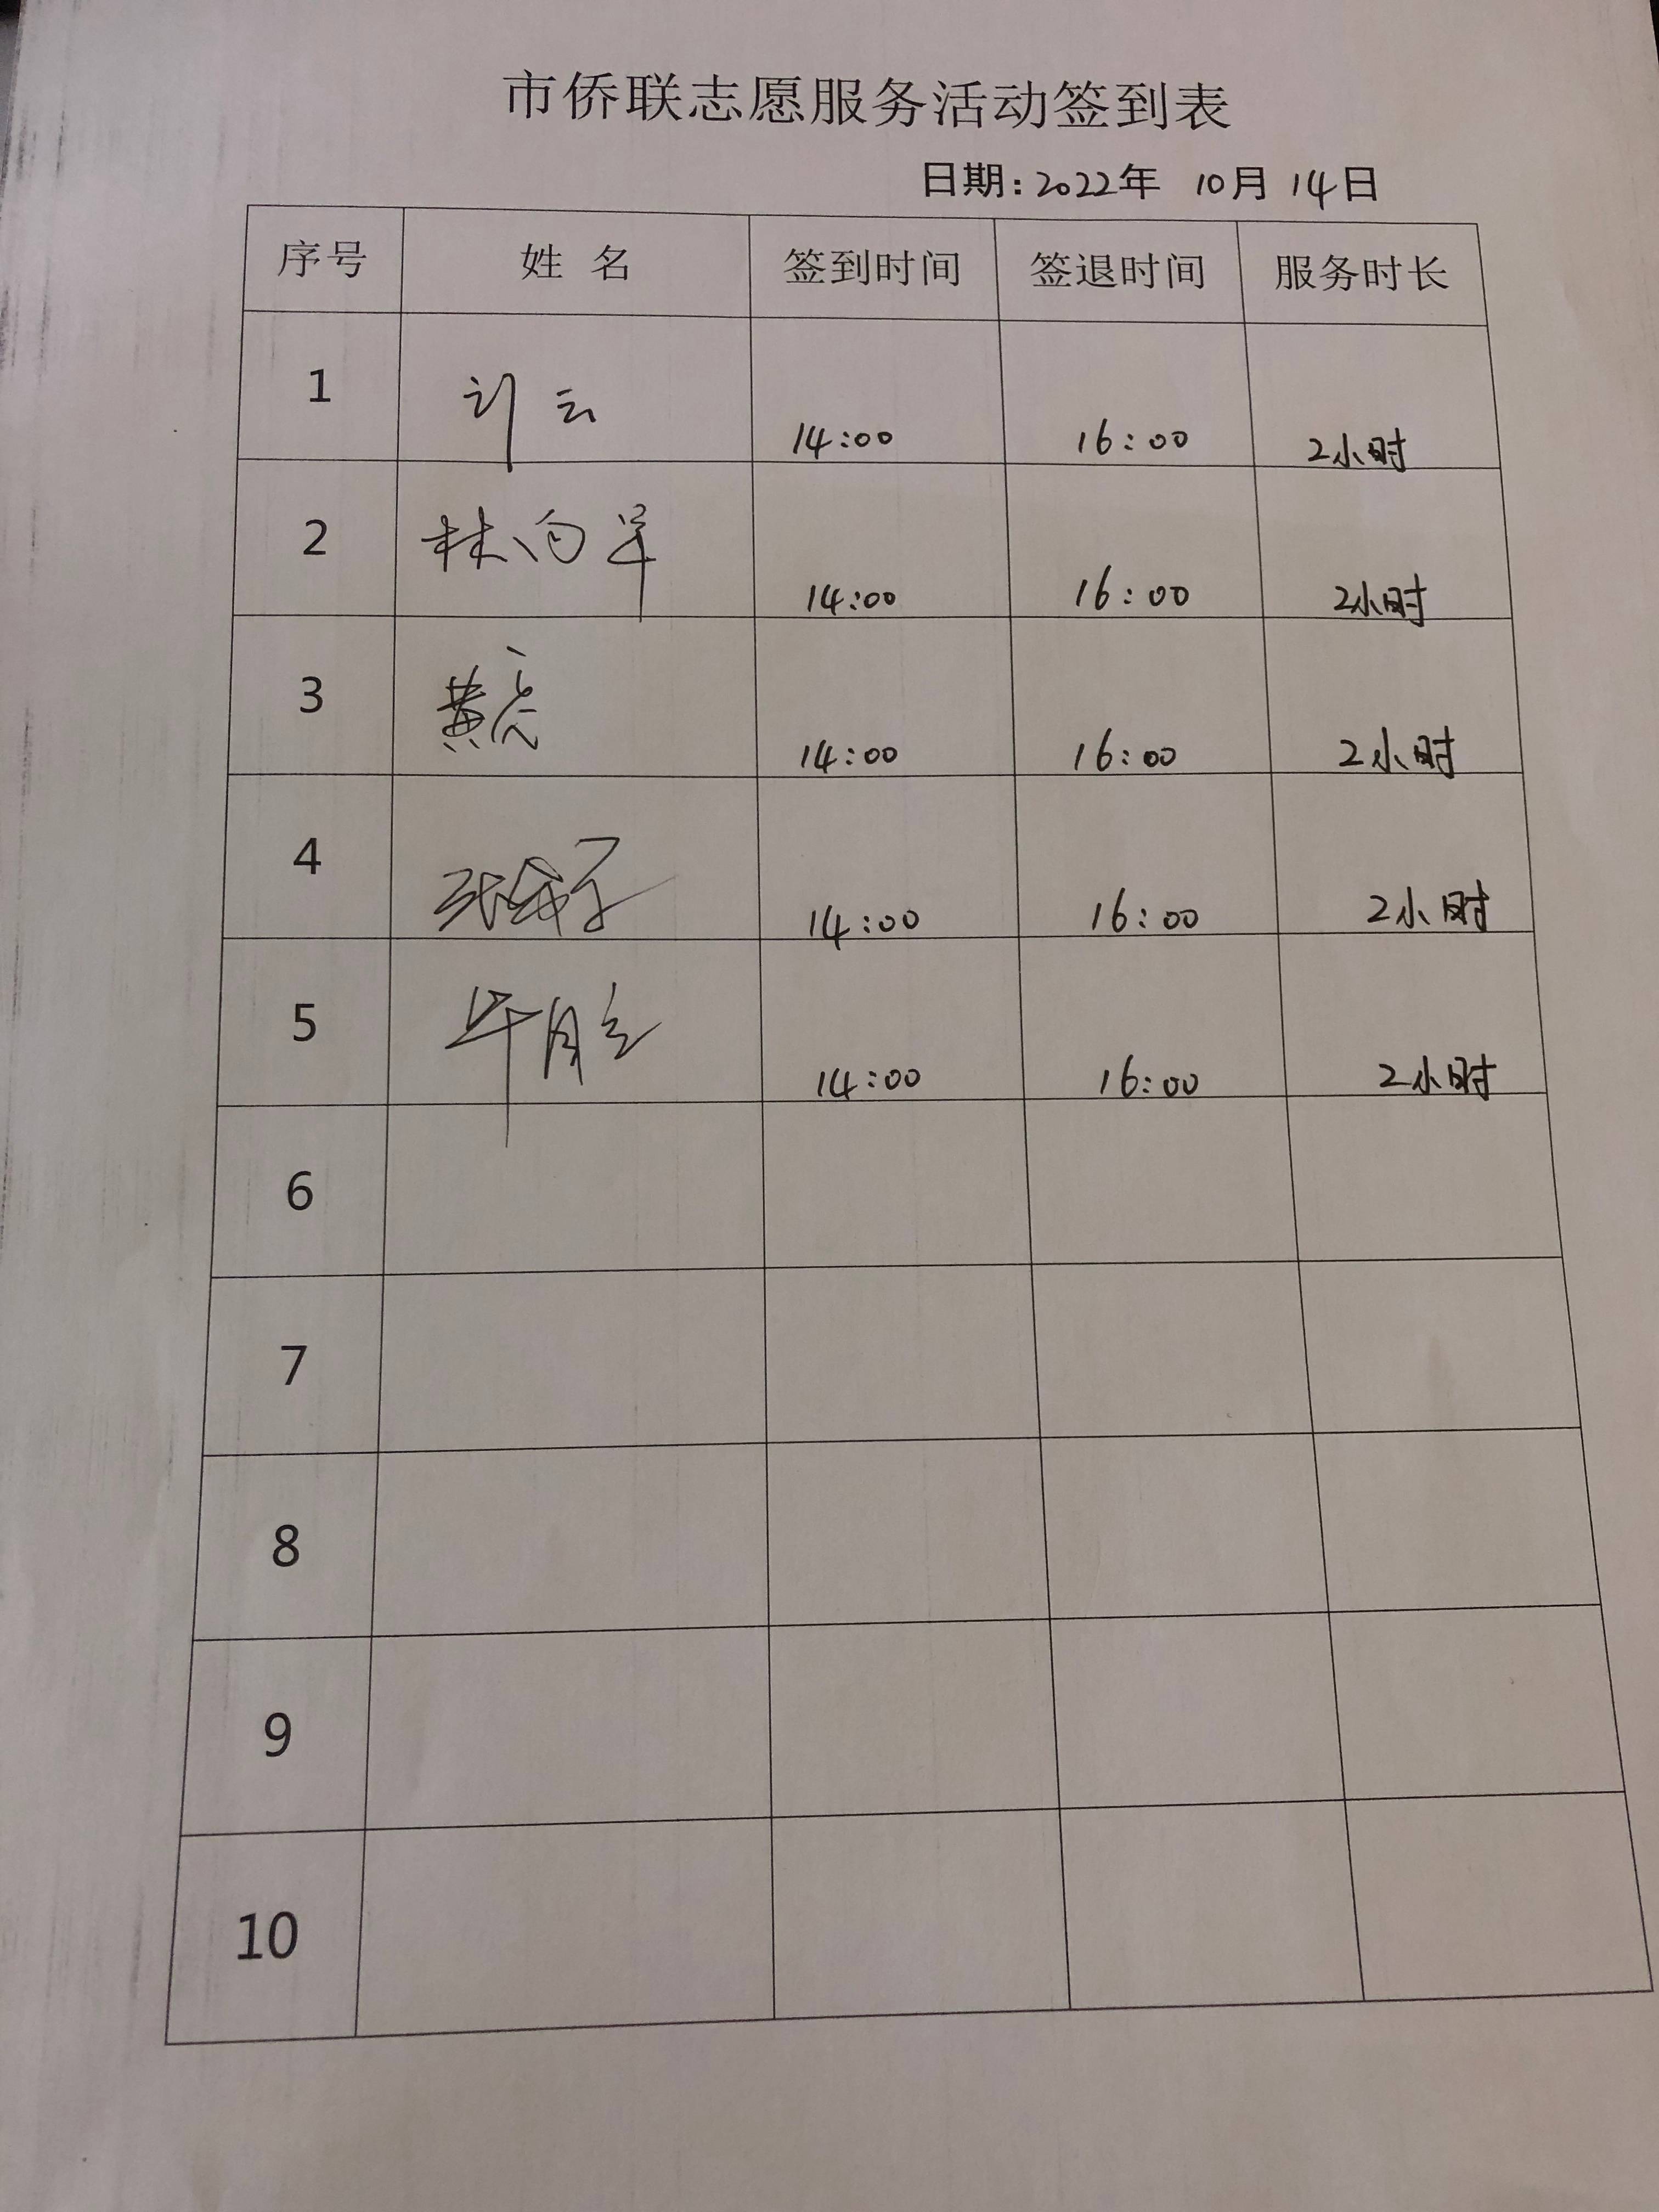 市侨联志愿服务活动签到表
日期：2022年 10月 14日
序号 姓名 签到时间 签退时间 服务时长
1 14:00 16:00 2小时
2 林向羊 14:00 16:00 2小时
3 黄亮 14:00 16:00 2小时
4 张 子 14:00 16:00 2小时
5 14:00 16:00 2小时
6
7
8
9
10